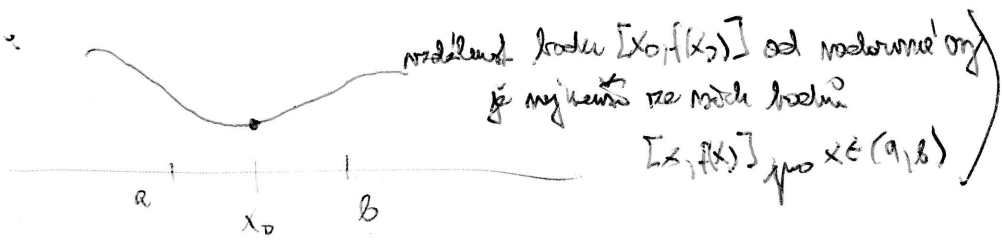 vzdálenost bodu [x₀, f(x₀)] od vodorovné osy
je nejmenší ze všech bodů
[x, f(x)] pro x ∈ (a, b)
a
b
x₀